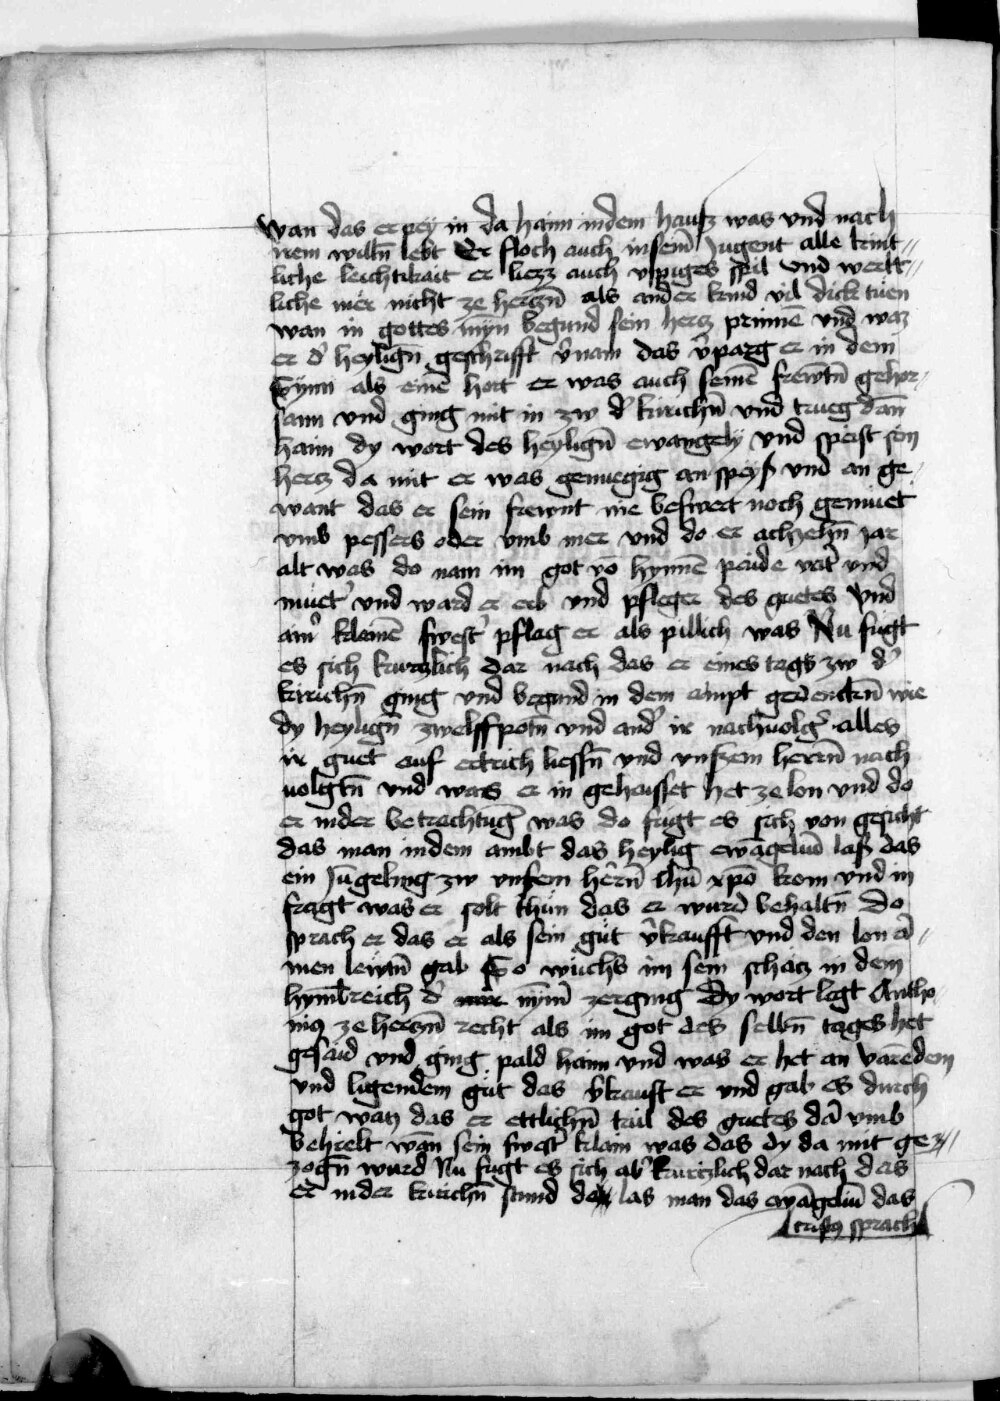 wan das er pey in da haim in dem hausz was vnd nach
irem willn̄ lebt Er floch auch in sein̄ Jugent alle kint-
liche leichtikait er liezz auch vppiges spil vnd werlt-
liche mër nicht ze herczn̄ als ander kind vil dick tuen
wan in gottes myn̄ begund sein hercz prinnē vnd waz
er d' heylign̄ geschrifft v'nam das v'parg er in dem
Synn als einē hort er was auch seinē frewtn̄ gehor-
sam vnd ging mit in zw d' kirichn̄ vnd trueg dan̄
haim dy wort des heylign̄ ewangely vnd speist sein
hercz da mit er was genuegig an speyß vnd an ge-
want das er sein frewnt nie beswert noch gemuet
vmb pessers oder vmb mer vnd do er achzehn̄ iar
alt was do nam im got vō hynnē paide vat' vnd
muet' vnd ward er erb vnd pfleger des guetes vnd
ain' klainē swest' pflag er als pillich was Nu fugt
es sich kurtzlich dar nach das er eines tags zw d'
kirichn̄ ging vnd begund in dem ampt gedenckn̄ wie
dy heylign̄ zwelffpotn̄ vnd and' ir nachuolg' alles
ir guet auf ertrich liessn̄ vnd vnszem herrn̄ nach
uolgtn̄ vnd was er in gehaisset het ze lon vnd do
er in der betrachtūg was do fugt es sich von geschicht
das man in dem ambt das heylig ewāgeliū laß das
ein Jūgeling zw vnsem hern̄ ihū xpō kom vnd in
fragt was er solt thün das er wurd behaltn̄ Do
sprach er das er als sein güt v'kaufft vnd den lon a-
men lewtn̄ gab So wuchs im sein schacz in dem
hymelreich d' nym' zerging Dy wort legt Antho
niꝰ ze herczn̄ recht als im got des selbn̄ tages het
gesaid vnd ging pald haim vnd was er het an varēdem
vnd ligendem güt das v'kauft er vnd gab es durch
got wan das er ettlichn̄ tail des guetes dā vmb
behielt wan sein swest' klain was das dy da mit gez-
zogn̄ wurd Nu fugt es sich ab' kurtzlich dar nach das
er in der kirichn̄ stund do las man das ewāgeliū das
cristꝰ sprach